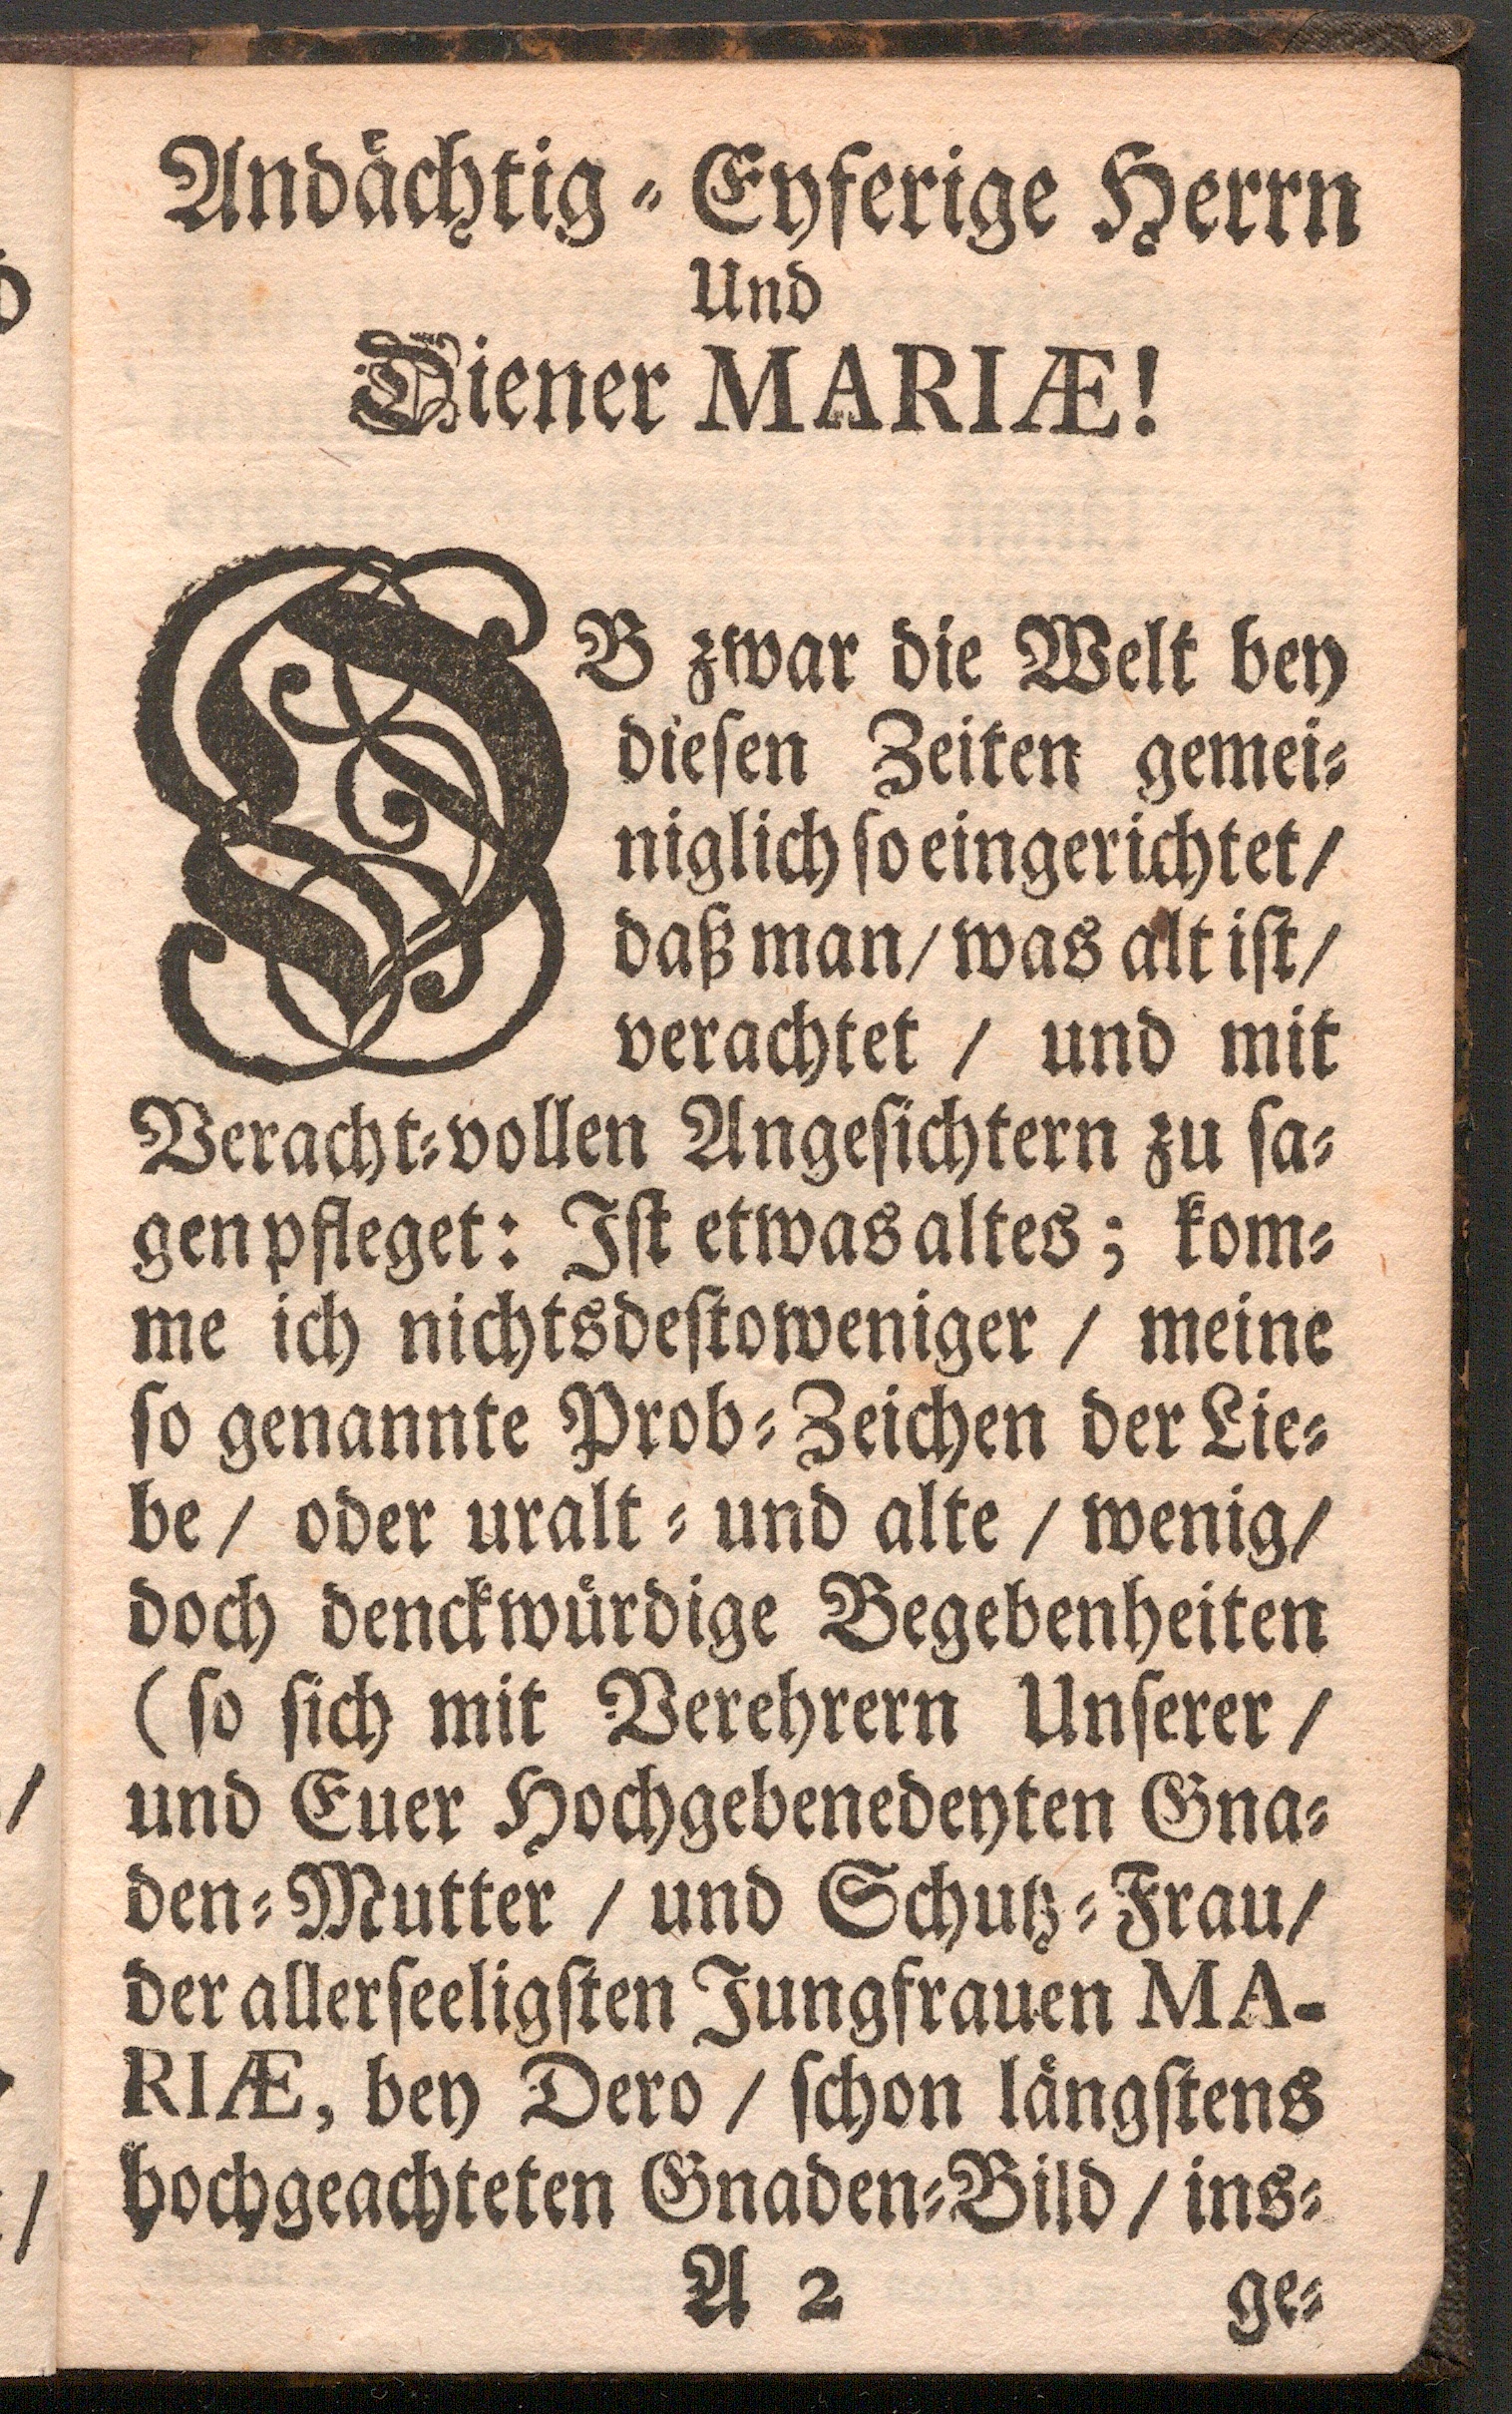 Andächtig-Eyferige Herrn
Und
Diener MARIÆ!
OB zwar die Welt bey
diesen Zeiten gemei-
niglich so eingerichtet/
daß man/ was alt ist/
verachtet / und mit
Veracht-vollen Angesichtern zu sa-
gen pfleget: Ist etwas altes; kom-
me ich nichtsdestoweniger / meine
so genannte Prob-Zeichen der Lie-
be / oder uralt- und alte / wenig/
doch denckwürdige Begebenheiten
(so sich mit Verehrern Unserer /
und Euer Hochgebenedeyten Gna-
den-Mutter / und Schutz-Frau/
der allerseeligsten Jungfrauen MA-
RIÆ, bey Dero / schon längstens
hochgeachteten Gnaden-Bild / ins-
A 2 ge-